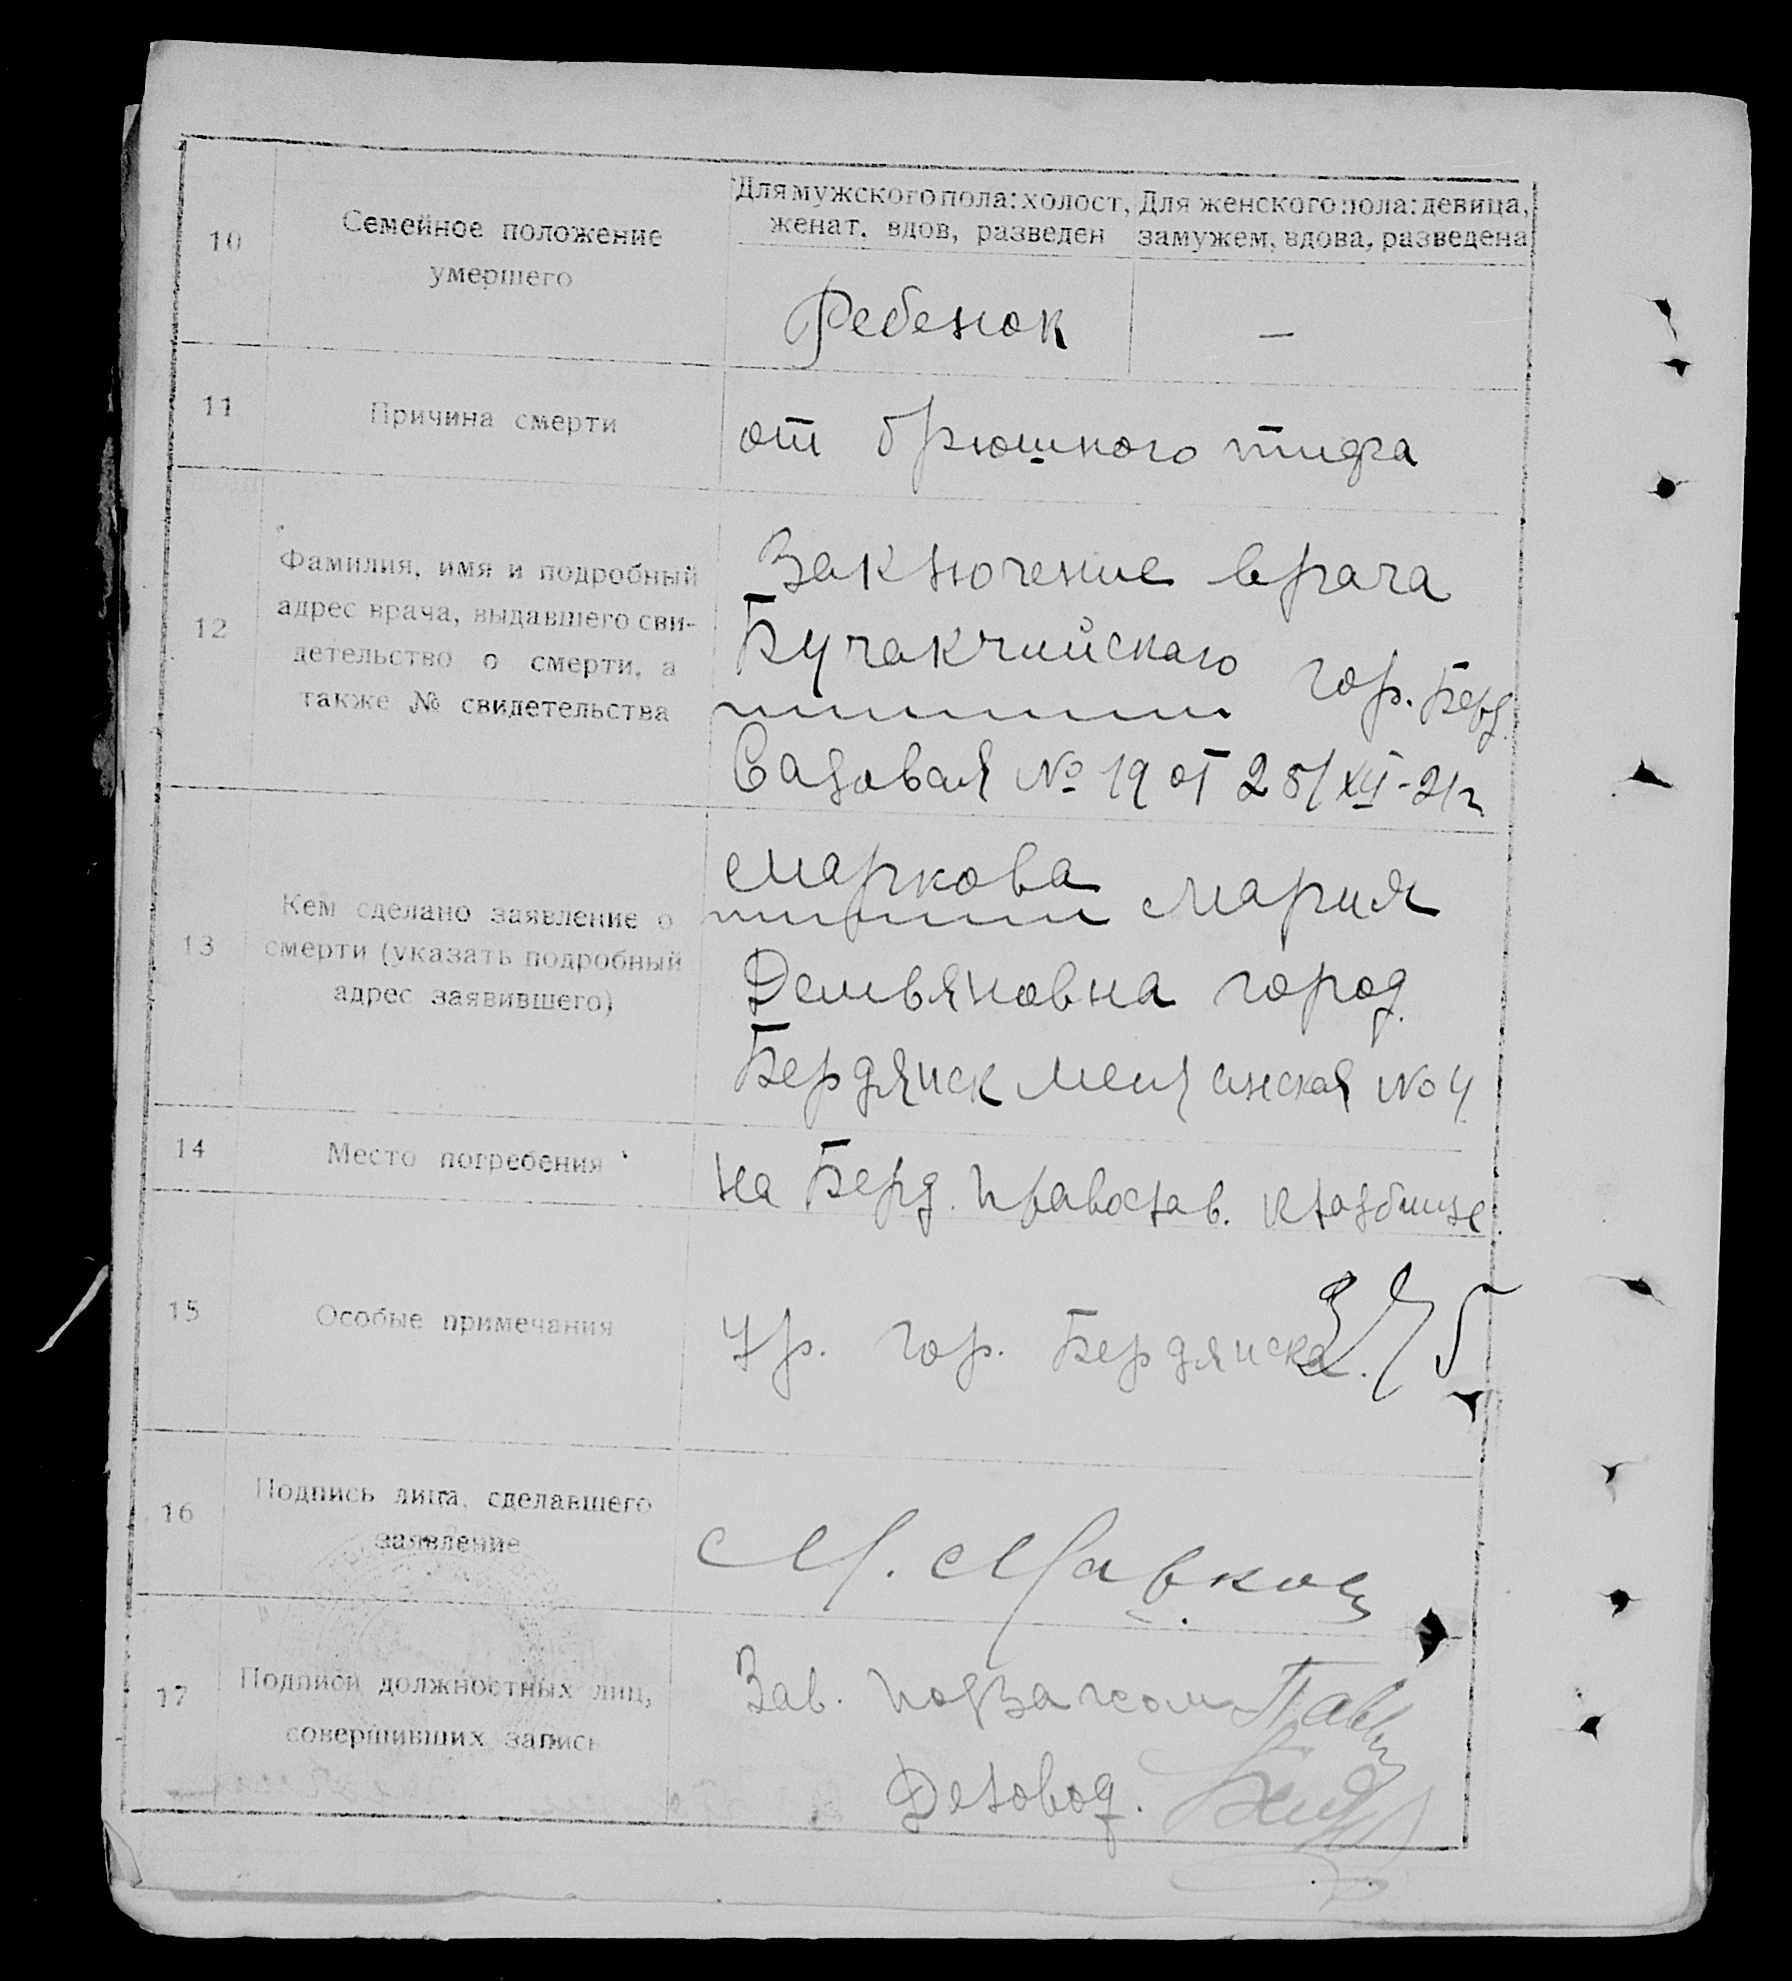 10
Семейное положение
умершего
Для мужского пола: холост,
женат, вдов, разведен
Для женского пола: девица,
замужем, вдова, разведена
Ребенок
—
11
Причина смерти
от брюшного тифа
12
Фамилия, имя и подробный
адрес врача, выдавшего сви-
детельство о смерти, а
также № свидетельства
Заключение врача
Бучакчийского гор. Берд.
Садовая № 19 от 28/XII-21г
13
Кем сделано заявление о
смерти (указать подробный
адрес заявившего)
Маркова Мария
Демьяновна город
Бердянск № 4
14
Место погребения
на Берд. Православ. кладбище.
15
Особые примечания
Ур. гор. Бердянска.
16
Подпись лица, сделавшего
заявление
М.
17
Подписи должностных лиц,
совершивших запись
Зав. подзагсом
Деловод.